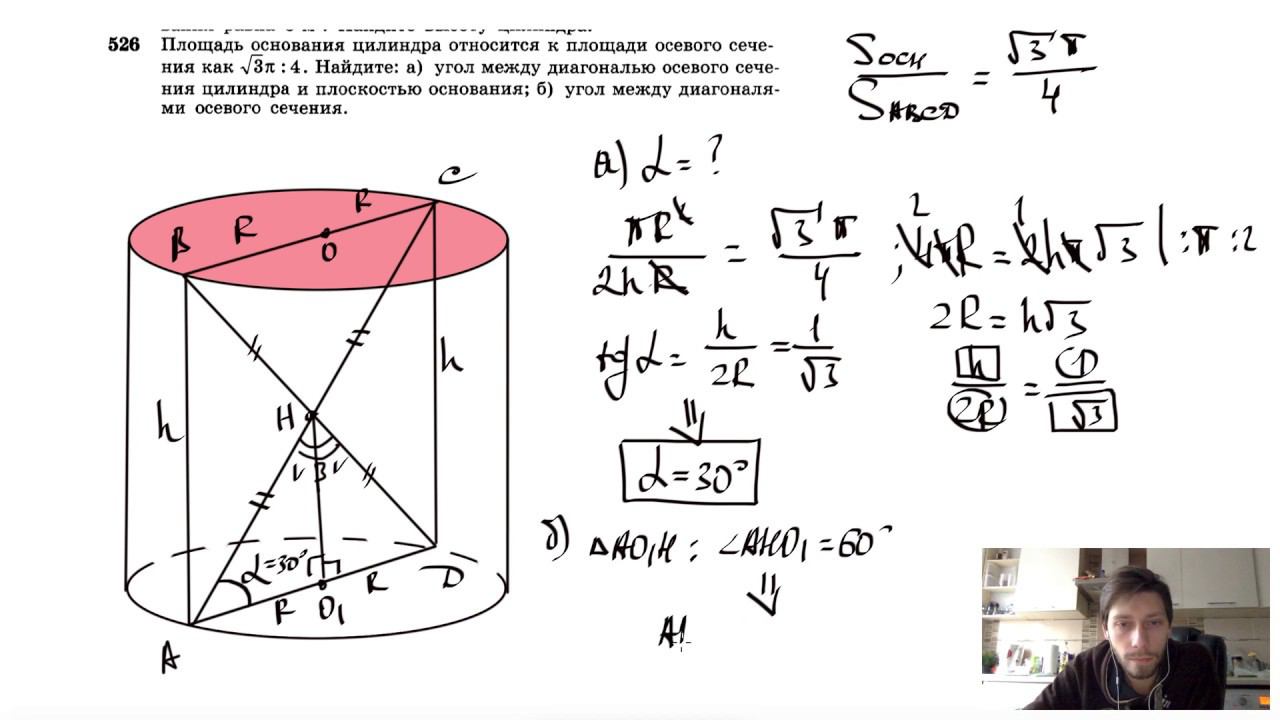 526 Площадь основания цилиндра относится к площади осевого сече-
ния как √3π : 4. Найдите: а) угол между диагональю осевого сече-
ния цилиндра и плоскостью основания; б) угол между диагоналя-
ми осевого сечения.
Sосн / SABCD = √3 π / 4
а) α = ?
πR² / 2hR = √3 π / 4 ; 4πR = 2hπ√3 | : π : 2
2 1
2R = h√3
tg α = h / 2R = 1 / √3
h / 2R = 1 / √3
α = 30°
б) △AO₁H : ∠AHO₁ = 60°
C
R
B R
O
h
h
H
β
α=30°
R
D
R O₁
A